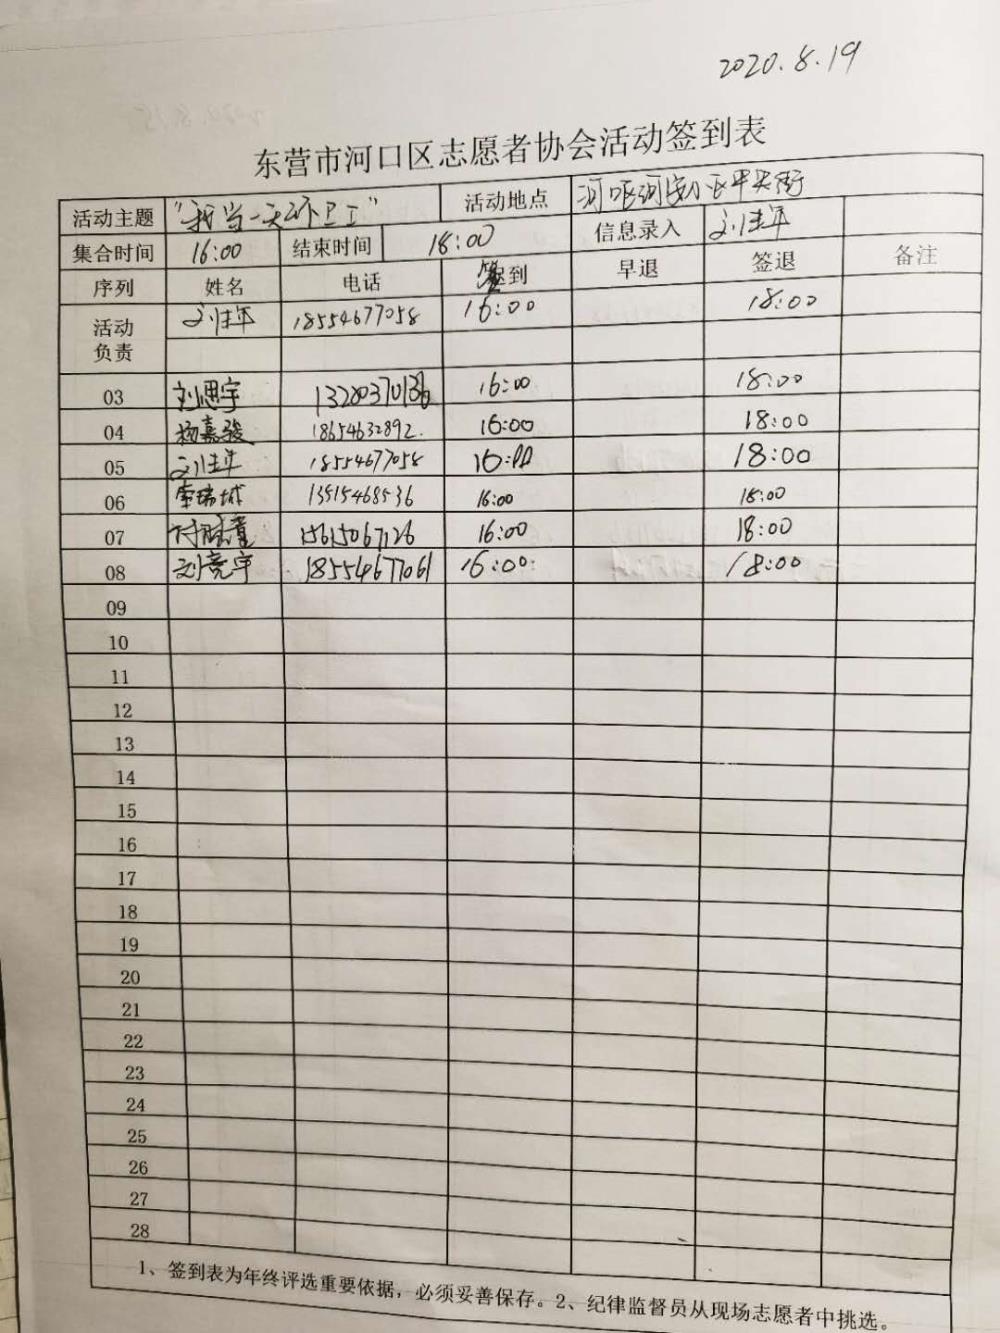 2020.8.19
东营市河口区志愿者协会活动签到表
活动主题 "我当一天环卫工" 活动地点 河
集合时间 16:00 结束时间 18:00 信息录入 刘佳年
序列 姓名 电话 签到 早退 签退 备注
活动负责 刘佳年 18554677058 16:00 18:00
03 刘思宇 13280370136 16:00 18:00
04 杨嘉骏 18654632892. 16:00 18:00
05 刘佳年 18554677058 16:00 18:00
06 13515468536 16:00 18:00
07 15615067126 16:00 18:00
08 刘竞宇 18554677061 16:00 18:00
09
10
11
12
13
14
15
16
17
18
19
20
21
22
23
24
25
26
27
28
1、签到表为年终评选重要依据，必须妥善保存。2、纪律监督员从现场志愿者中挑选。